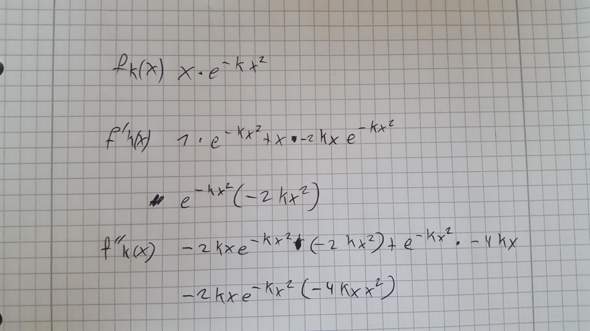 fₖ(x) x · e^(-kx²)
f'ₖ(x) 1 · e^(-kx²) + x · -2kx e^(-kx²)
e^(-kx²) (-2kx²)
f''ₖ(x) -2kxe^(-kx²) · (-2kx²) + e^(-kx²) · -4kx
-2kxe^(-kx²) (-4kxx²)